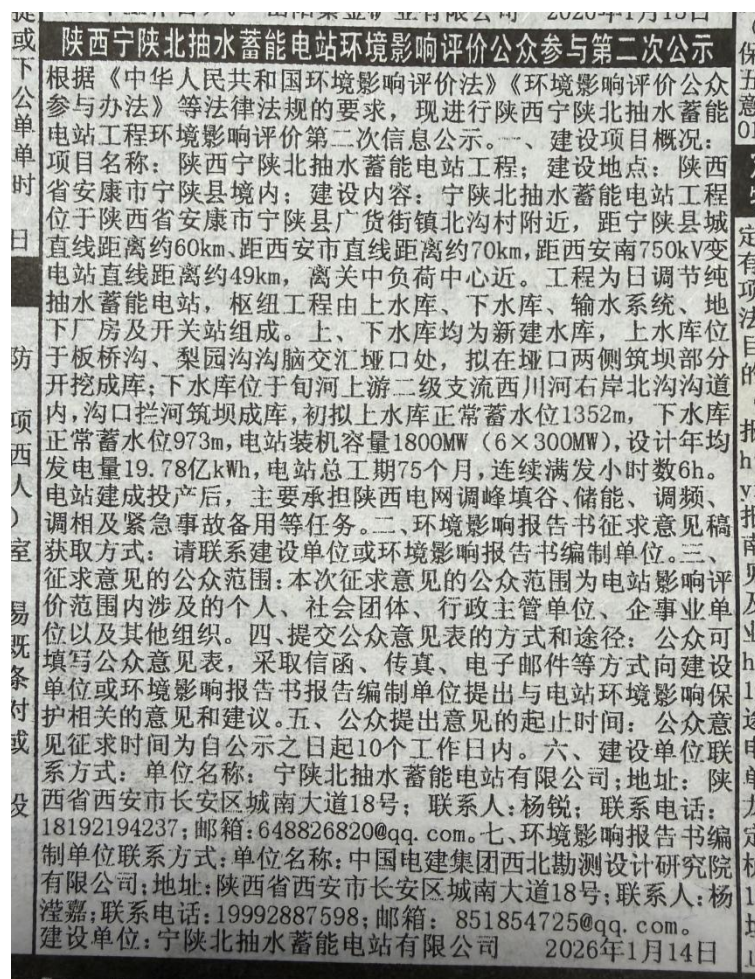 2026年1月13日
陕西宁陕北抽水蓄能电站环境影响评价公众参与第二次公示
根据《中华人民共和国环境影响评价法》《环境影响评价公众
参与办法》等法律法规的要求，现进行陕西宁陕北抽水蓄能
电站工程环境影响评价第二次信息公示。一、建设项目概况：
项目名称：陕西宁陕北抽水蓄能电站工程；建设地点：陕西
省安康市宁陕县境内；建设内容：宁陕北抽水蓄能电站工程
位于陕西省安康市宁陕县广货街镇北沟村附近，距宁陕县城
直线距离约60km、距西安市直线距离约70km，距西安南750kV变
电站直线距离约49km，离关中负荷中心近。工程为日调节纯
抽水蓄能电站，枢纽工程由上水库、下水库、输水系统、地
下厂房及开关站组成。上、下水库均为新建水库，上水库位
于板桥沟、梨园沟沟脑交汇垭口处，拟在垭口两侧筑坝部分
开挖成库；下水库位于旬河上游二级支流西川河右岸北沟沟道
内，沟口拦河筑坝成库，初拟上水库正常蓄水位1352m，下水库
正常蓄水位973m，电站装机容量1800MW（6×300MW），设计年均
发电量19.78亿kWh，电站总工期75个月，连续满发小时数6h。
电站建成投产后，主要承担陕西电网调峰填谷、储能、调频、
调相及紧急事故备用等任务。二、环境影响报告书征求意见稿
获取方式：请联系建设单位或环境影响报告书编制单位。三、
征求意见的公众范围：本次征求意见的公众范围为电站影响评
价范围内涉及的个人、社会团体、行政主管单位、企事业单
位以及其他组织。四、提交公众意见表的方式和途径：公众可
填写公众意见表，采取信函、传真、电子邮件等方式向建设
单位或环境影响报告书报告编制单位提出与电站环境影响保
护相关的意见和建议。五、公众提出意见的起止时间：公众意
见征求时间为自公示之日起10个工作日内。六、建设单位联
系方式：单位名称：宁陕北抽水蓄能电站有限公司；地址：陕
西省西安市长安区城南大道18号；联系人：杨锐；联系电话：
18192194237；邮箱：648826820@qq.com。七、环境影响报告书编
制单位联系方式：单位名称：中国电建集团西北勘测设计研究院
有限公司；地址：陕西省西安市长安区城南大道18号；联系人：杨
滢嘉；联系电话：19992887598；邮箱：851854725@qq.com。
建设单位：宁陕北抽水蓄能电站有限公司 2026年1月14日